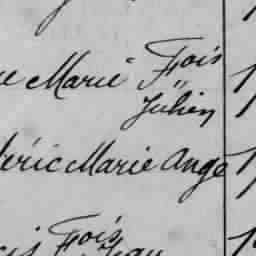 Marie Fois
Julien
éric Marie Ange
Fois
Jean